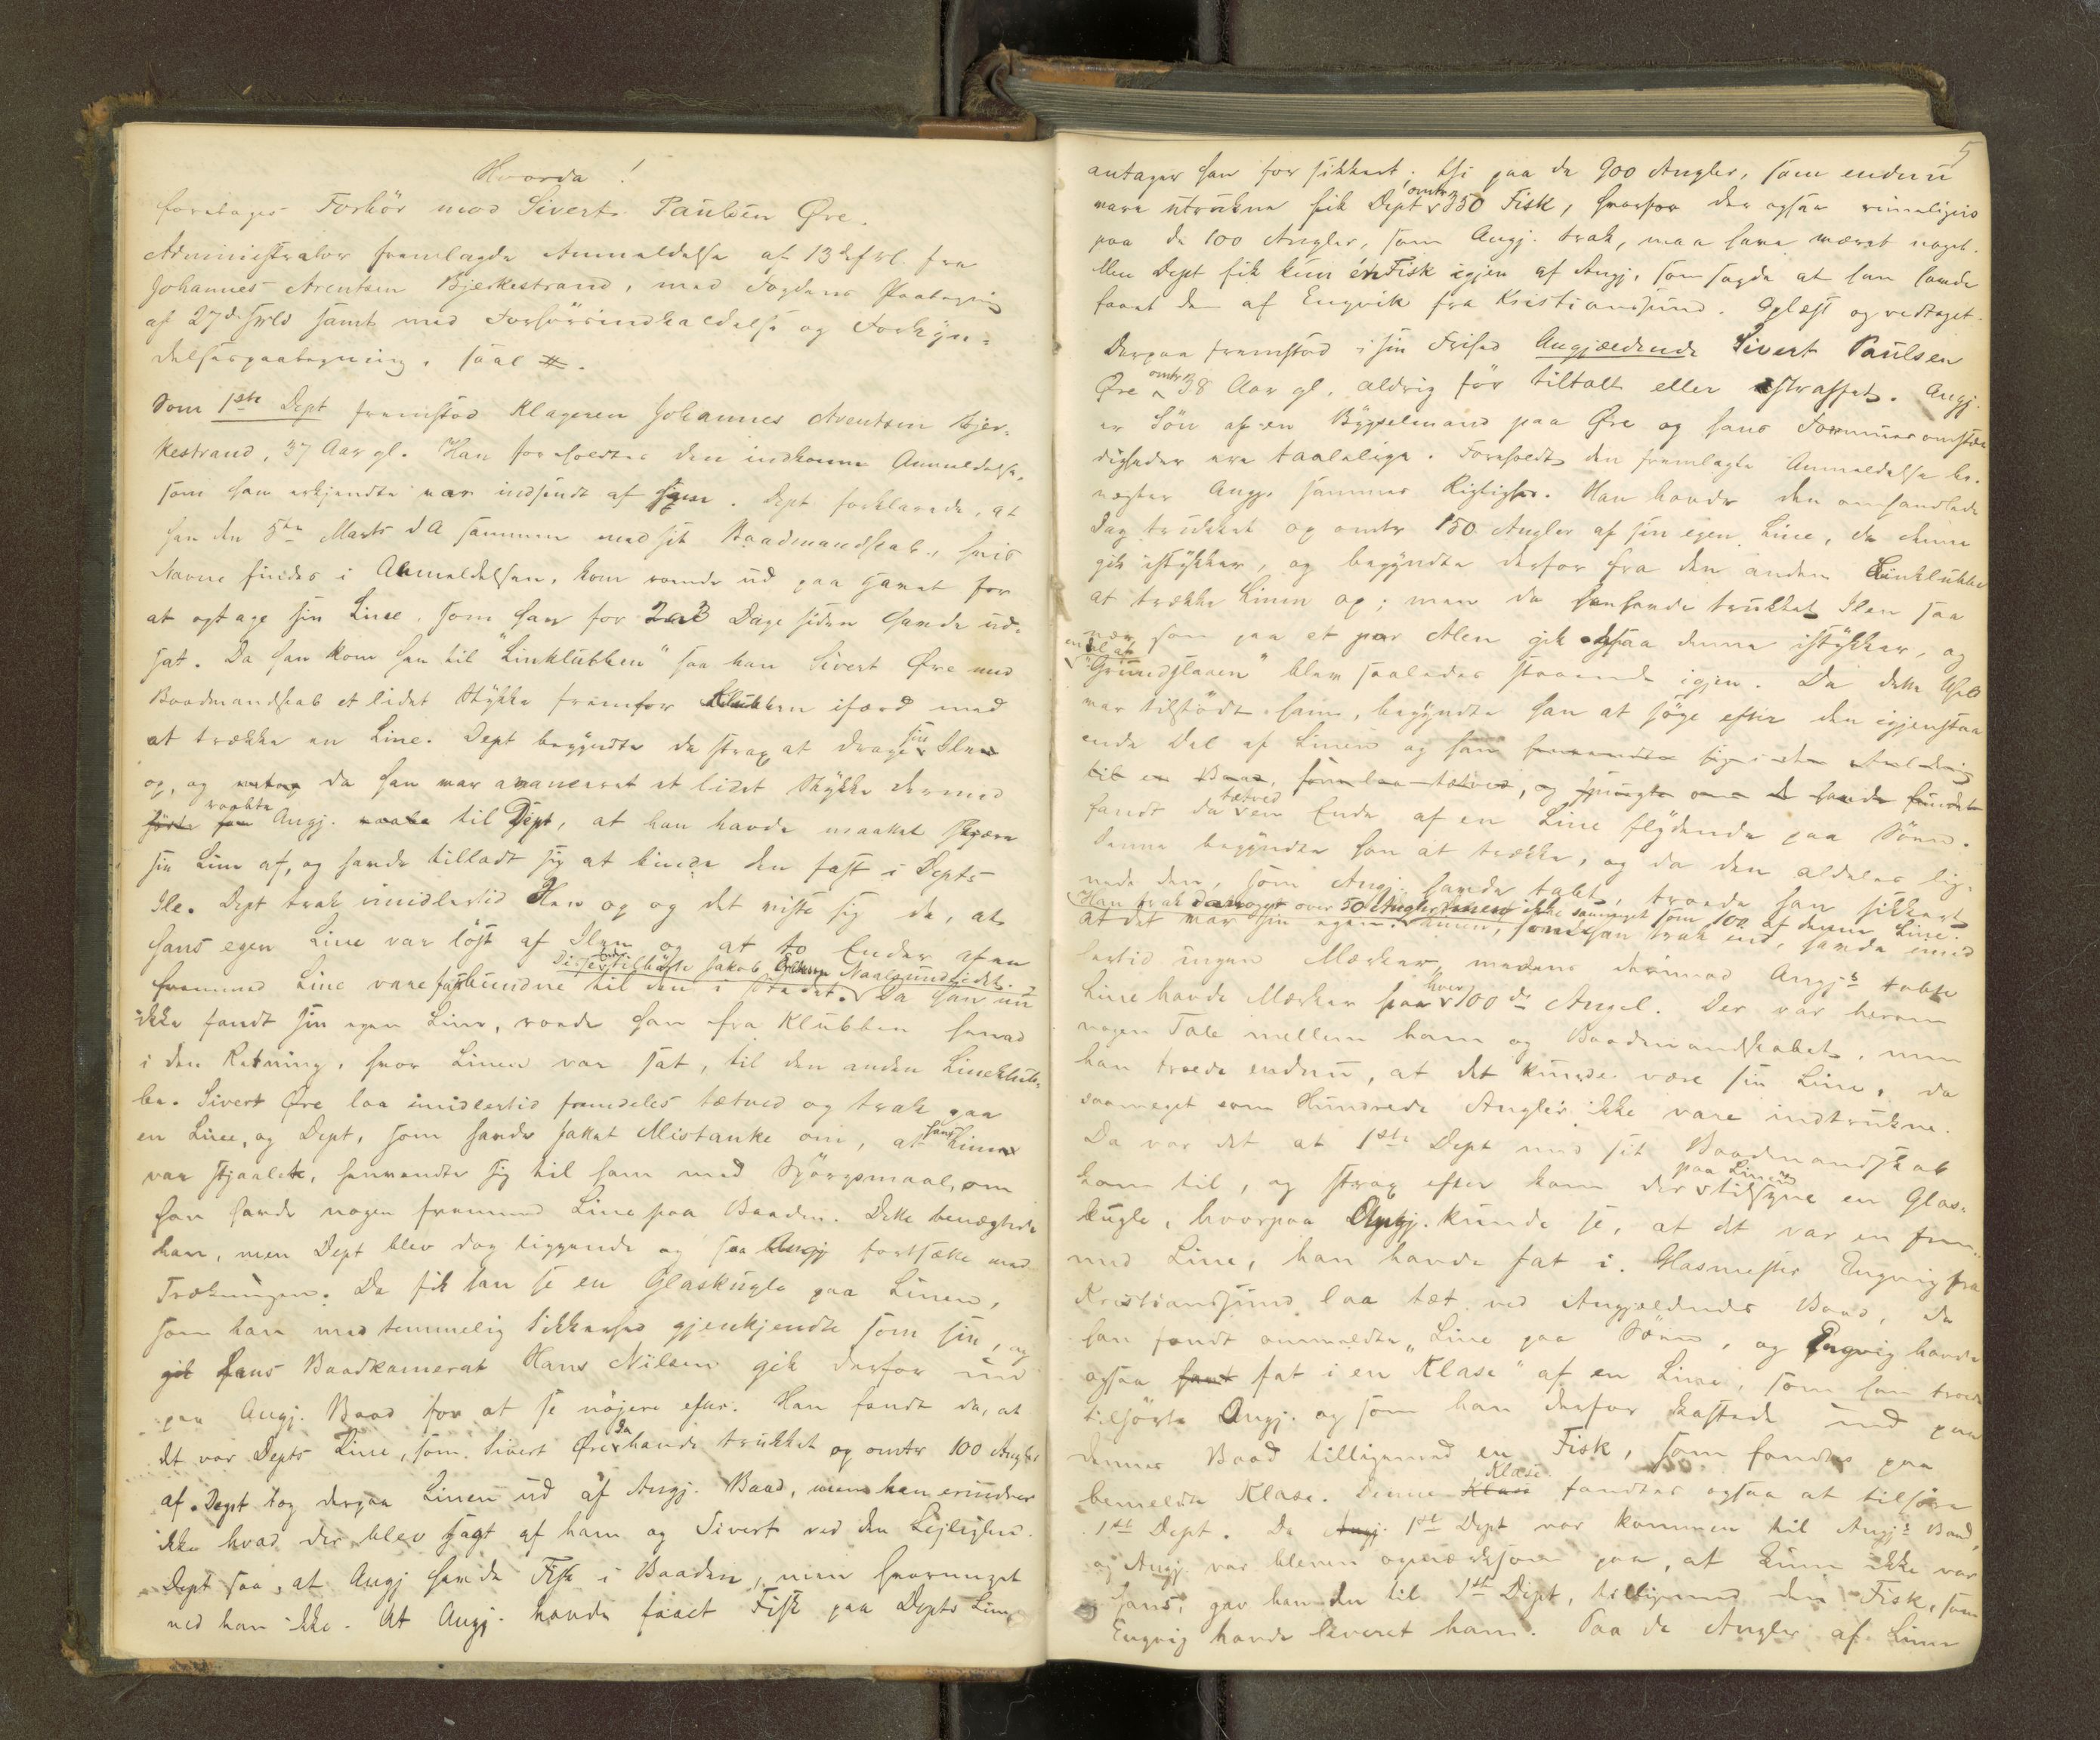 Hvorda!
foretages Forhör mod Sivert Paulsen Øre.
Administrator fremlagde Anmeldelse af 13de f.vl. fra
Johannes Arentsen Bjerkestrand, med Fogdens Paategning
af 27de s.M. samt med Forhörsindkaldelse og Forkyn-
delsespaategning, saal #.
Som 1ste Dept fremstod Klageren Johannes Arentsen Bjer-
kestrand, 37 Aar gl. Han foreholdtes den indkomne Anmeldelse,
som han erkjendte var indsendt af ham. Dept forklarede, at
han den 5te Marts d A sammen med sit Baadmandskab, hvis
Navne findes i Anmeldelsen, kom roende ud paa Havet for
at optage sin Line, som han for 2 a 3 Dage siden havde ud-
sat. Da han kom hen til "Linklubben" saa han Sivert Øre med
Baadmandskab et lidet Stykke fremfor Klubben ifærd med
at trække en Line. Dept begyndte da strax at drage sin Ile
op, og da han var avanceret et lidet Stykke dermed
raabte Angj. til Dept, at han havde maattet skjære
sin Line af, og havde tilladt sig at binde den fast i Depts
Ile. Dept trak imidlertid Ilen op og det viste sig da, at
hans egen Line var löst af Ilen og at to Ender af en
Disse Ender tilhörte Jakob Naalsundlidet.
fremmed Line vare fastbundne til den i Stedet. Da han nu
ikke fandt sin egen Line, roede han fra Klubben henad
i den Retning, hvor Linen var sat, til den anden Lineklub-
be. Sivert Øre laa imidlertid fremdeles tætved og trak paa
en Line, og Dept, som havde fattet Mistanke om, at hans Line
var stjaalet, henvendte sig til ham med Spörgsmaal, om
han havde nogen fremmed Line paa Baaden. Dette benægtede
han, men Dept blev dog liggende og saa Angj fortsætte med
Trækningen. Da fik han se en Glaskugle paa Linen,
som han med temmelig Sikkerhed gjenkjendte som sin, og
hans Baadkamerat Hans Nilsen gik derfor ind
paa Angj. Baad for at se nöjere efter. Han fandt da, at
det var Depts Line, som Sivert Øre da havde trukket og omtr 100 Angler
af. Dept tog derpaa Linen ud af Angj. Baad, men han erindrer
ikke hvad der blev sagt af ham og Sivert ved den Lejlighed.
Dept saa, at Angj havde Fisk i Baaden, men hvormeget
ved han ikke. At Angj. havde faaet Fisk paa Depts Line
5
antager han for sikkert; thi paa de 900 Angler, som endnu
vare utrukne fik Dept omtr 350 Fisk, hvorfor der ogsaa rimeligvis
paa de 100 Angler, som Angj. trak, maa have været noget.
Men Dept fik kun én Fisk igjen af Angj, som sagde at han havde
faaet den af Engvik fra Kristiansund. Oplæst og vedtaget.
Derpaa fremstod i sin Frihed Angjældende Sivert Paulsen
Øre omtr 38 Aar gl. aldrig för tiltalt eller straffet. Angj.
er Sön af en Bygselmand paa Øre og hans Formuesomstæn
digheder ere taalelige. Foreholdt den fremlagte Anmeldelse be-
nægter Angj. sammes Rigtighed. Han havde den omhandlede
Dag trukket op omtr 150 Angler af sin egen Line, da denne
gik istykker, og begyndte derfor fra den anden Linklubbe
at trække Linen op; men da han havde trukket Ilen saa
nær som paa et par Alen gik ogsaa denne istykker, og
en Del af
"Grundstaven" blev saaledes staaende igjen. Da dette Uheld
var tilstödt ham, begyndte han at söge efter den igjenstaa
ende Del af Linen og han
til en Baad, som laa tætved, og spurgte om de havde fundet
fandt da tætved en Ende af en Line flydende paa Söen.
Denne begyndte han at trække, og da den aldeles lig-
nede den, som Angj. havde tabt, troede han sikkert
Han trak da noget over 50 Angler men ikke saameget som 100 af denne Line.
at det var sin egen. Linen, som han trak ind, havde imid
lertid ingen Mærker, medens derimod Angj's tabte
Line havde Mærker paa hver 100de Angel. Der var herom
nogen Tale mellem ham og Baadmandskabet, men
han troede endnu, at det kunde være sin Line, da
saameget som Hundrede Angler ikke vare indtrukne.
Da var det at 1ste Dept med sit Baadmandskab
kom til, og strax efter kom der paa Linen tilsyne en Glas-
kugle, hvorpaa Angj. kunde se, at det var en frem-
med Line, han havde fat i. Glasmester Engvig fra
Kristiansund laa tæt ved Angjældendes Baad, da
han fandt ommeldte Line paa Söen, og Engvig havde
ogsaa fat i en "Klase" af en Line, som han troede
tilhörte Angj. og som han derfor kastede ind paa
dennes Baad tilligemed en Fisk, som fandtes paa
bemeldte Klase. Denne Klase fandtes ogsaa at tilhöre
1ste Dept. Da 1ste Dept var kommen til Angj's Baad,
og Angj. var bleven opmærksom paa, at Linen ikke var
hans, gav han den til 1ste Dept, tilligemed den Fisk, som
Engvig havde leveret ham. Paa de Angler af Linen